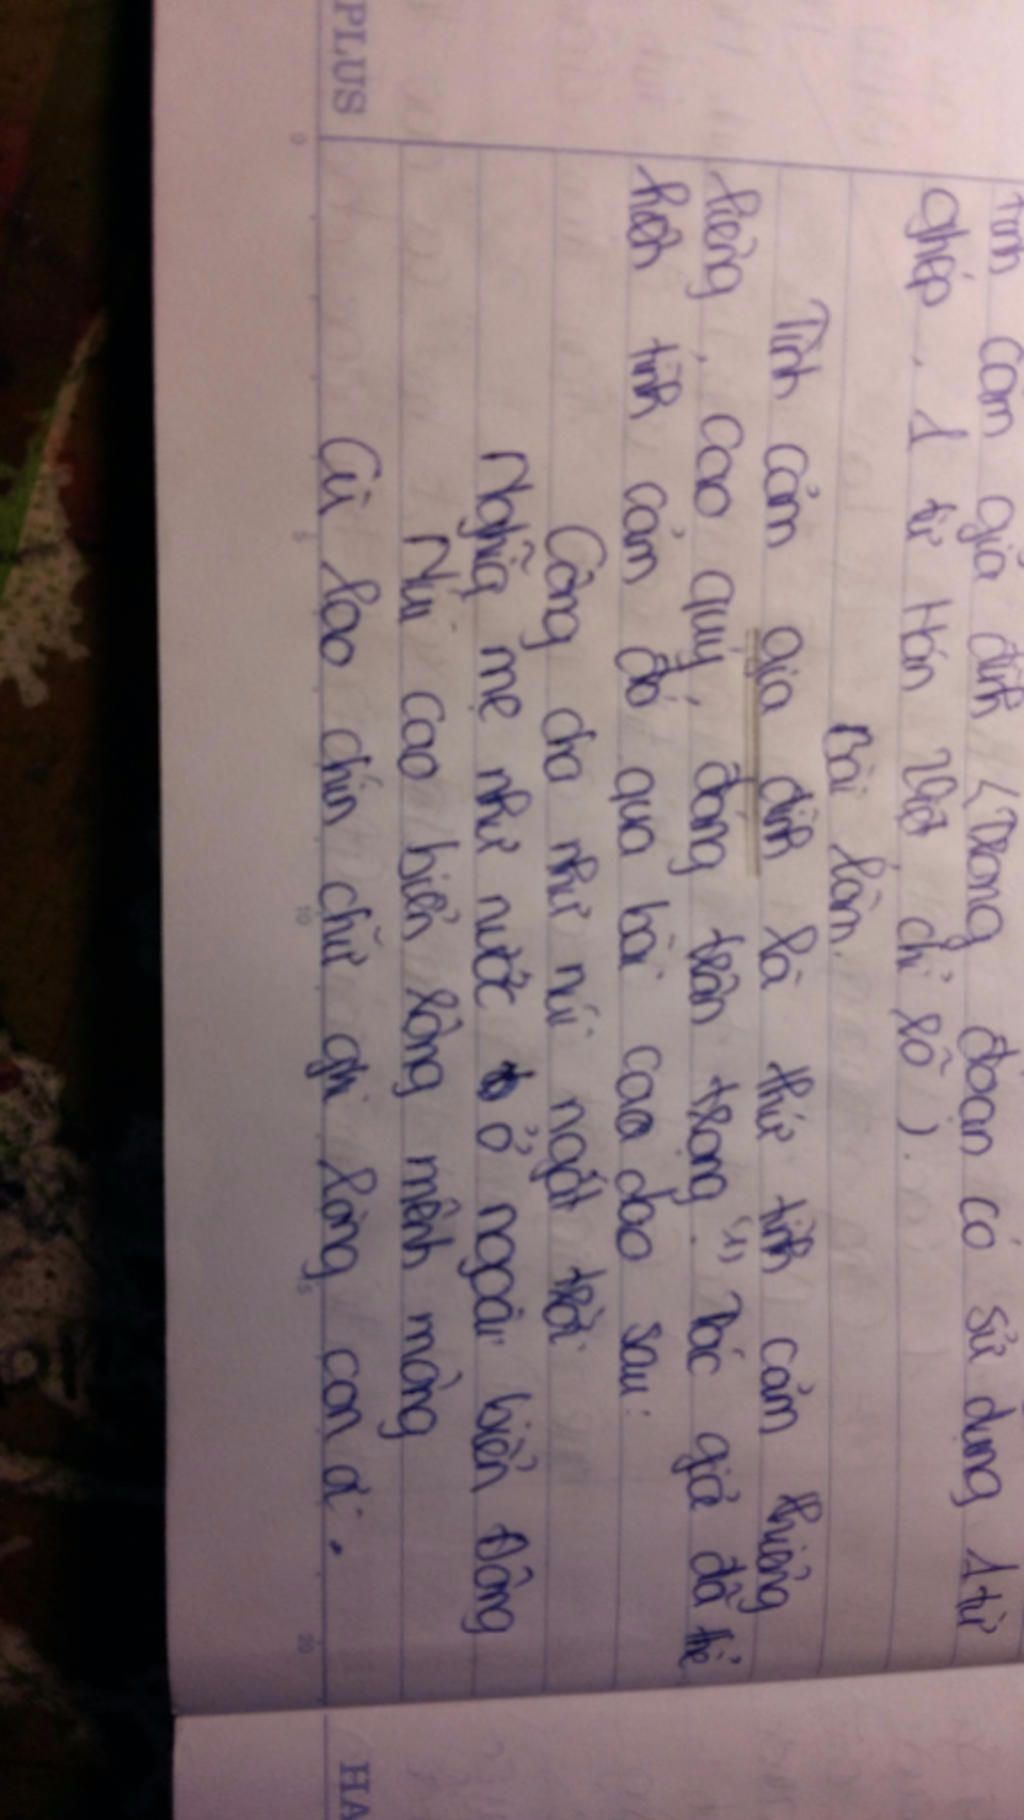 tình cảm gia đình (Trong đoạn có sử dụng 1 từ
ghép, 1 từ Hán Việt, chỉ rõ).
Bài làm.
Tình cảm gia đình là thứ tình cảm thiêng
liêng, cao quý, đáng trân trọng. (1) Tác giả đã thể
hiện tình cảm đó qua bài cao dao sau:
Công cha như núi ngất trời
Nghĩa mẹ như nước ở ngoài biển Đông
Núi cao biển rộng mênh mông
Cù lao chín chữ ghi lòng con ơi.
PLUS
0
5
10
15
20
HA